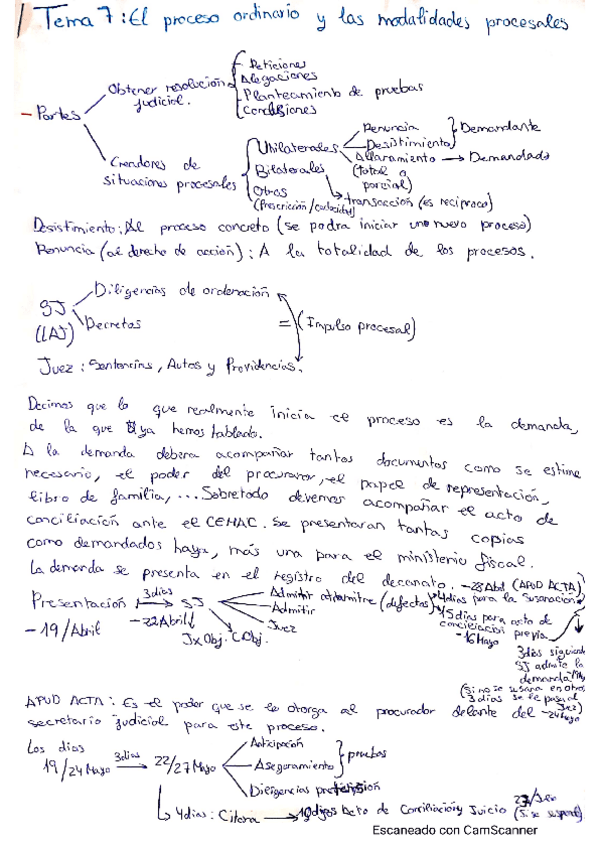 Tema 7: El proceso ordinario y las modalidades procesales
- Partes
Obtener resolución judicial.
Peticiones
Alegaciones
Planteamiento de pruebas
Conclusiones
Creadores de situaciones procesales
Unilaterales
Renuncia
Desistimiento
} Demandante
Allanamiento → Demandado
(total o parcial)
Bilaterales
transacción (es recíproco)
Otros
(Prescricción / caducidad)
Desistimiento: Al proceso concreto (se podra iniciar uno nuevo proceso)
Renuncia (al derecho de acción): A la totalidad de los procesos.
SJ
(LAJ)
Diligencias de ordenación
Decretos
= (Impulso procesal)
Juez: Sentencias, Autos y Providencias.
Decimos que lo que realmente inicia el proceso es la demanda,
de la que ya hemos hablado.
A la demanda debera acompañar tantos documentos como se estime
necesario, el poder del procurador, el papel de representación,
libro de familia, ... Sobretodo devemos acompañar el acto de
conciliación ante el CEMAC. Se presentaran tantas copias
como demandados haya, más una para el ministerio fiscal.
La demanda se presenta en el registro del decanato.
- 28 Abril (APUD ACTA)
Presentación 3 dias → SJ
- 19/Abril
- 22 Abril
Admitir (defectos)
4 dias para la subsanación
Admitir
Juez
Jx Obj. C Obj.
15 dias para acto de conciliación previa
- 16 Mayo
3 dias siguiente
SJ admite la
demanda
(Si no se subsana en otros
3 dias se le pasa al
Juez)
- 24 Mayo
APUD ACTA: Es el poder que se le otorga al procurador delante del
secretario judicial para este proceso.
Los dias
19/24 Mayo 3 dias → 22/27 Mayo
Anticipación
Aseguramiento
} pruebas
Diligencias
4 dias: Citará → 10 dias Acto de Conciliación y Juicio
(Si se suspende)
Escaneado con CamScanner